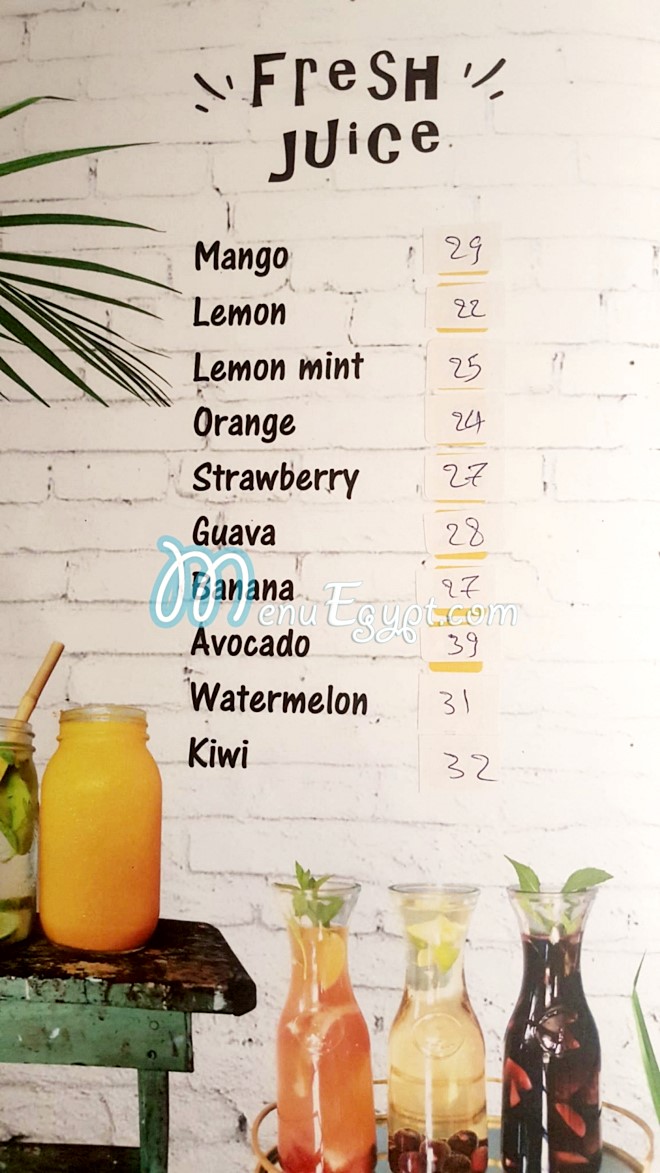 FresH
Juice
Mango 29
Lemon 22
Lemon mint 25
Orange 24
Strawberry 27
Guava 28
Banana 27
MenuEgypt.com
Avocado 39
Watermelon 31
Kiwi 32